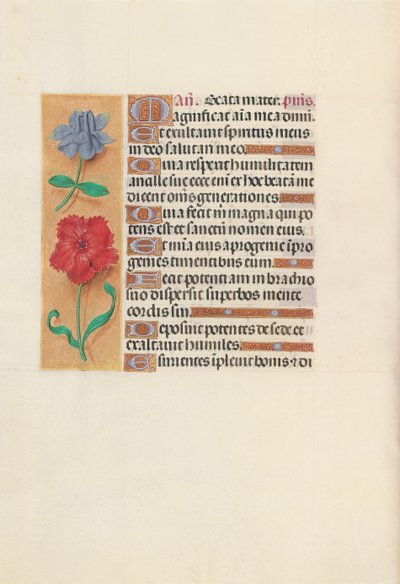 Añ. Beata mater. pms.
Magnificat aīa mea dominū.
Et exultauit spiritus meus
in deo salutari meo.
Quia respexit humilitatem
ancille sue ecce enī er hoc beatā me
dicent om̄s generationes.
Quia fecit m̄ magna qui po
tens est et sanctū nomen eius.
Et mīa eius a progenie ī pro
genies timentibus eum.
Fecit potentiam in brachio
suo dispersit superbos mente
cordis sui.
Deposuit potentes de sede et
exaltauit humiles.
Esurientes īpleuit bonis ⁊ di